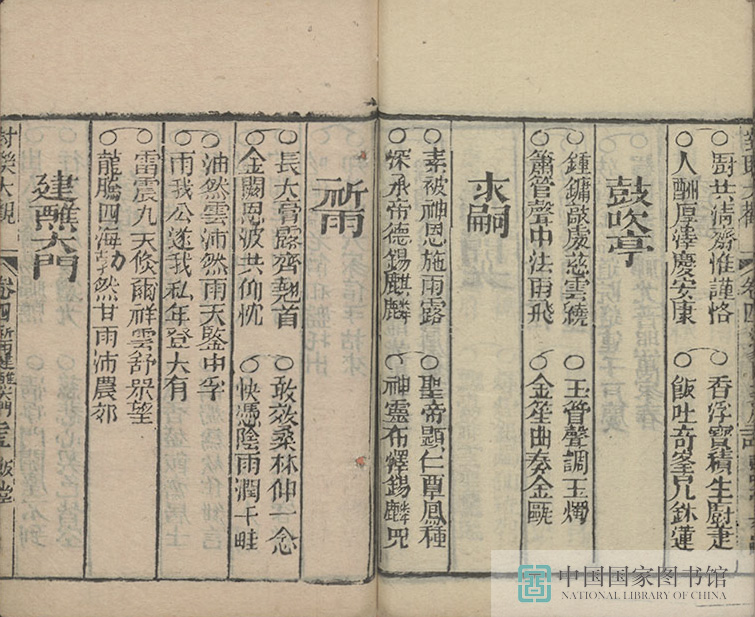 廚艹清齋惟謹恪 香浮寶積生廚疌
人酬厚澤慶安康 飯吐奇峯咒鉢蓮
鼓吹亭
鍾鏞敲處慈雲繞 玉管聲調玉燭
簫管聲中法雨飛 金笙曲奏金甌
求嗣
素被神恩施雨露 聖帝顯仁覃鳳種
深承帝德錫麒麟 神靈布懌錫麟兒
祈雨
長大膏露齊翹首 敢效桑林伸一念
金闕恩波共仰忱 快憑陰雨潤千畦
油然雲沛然雨天鑒中孚
雨我公遂我私年登大有
雷震九天倏爾祥雲舒眾望
龍騰四海勃然甘雨沛農郊
建醮大門
大觀 卷四 祈雨建醮大門
中国国家图书馆
NATIONAL LIBRARY OF CHINA